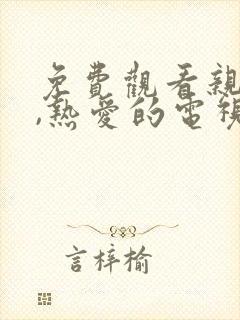 免費觀看親
,熱愛的電視
言梓榆